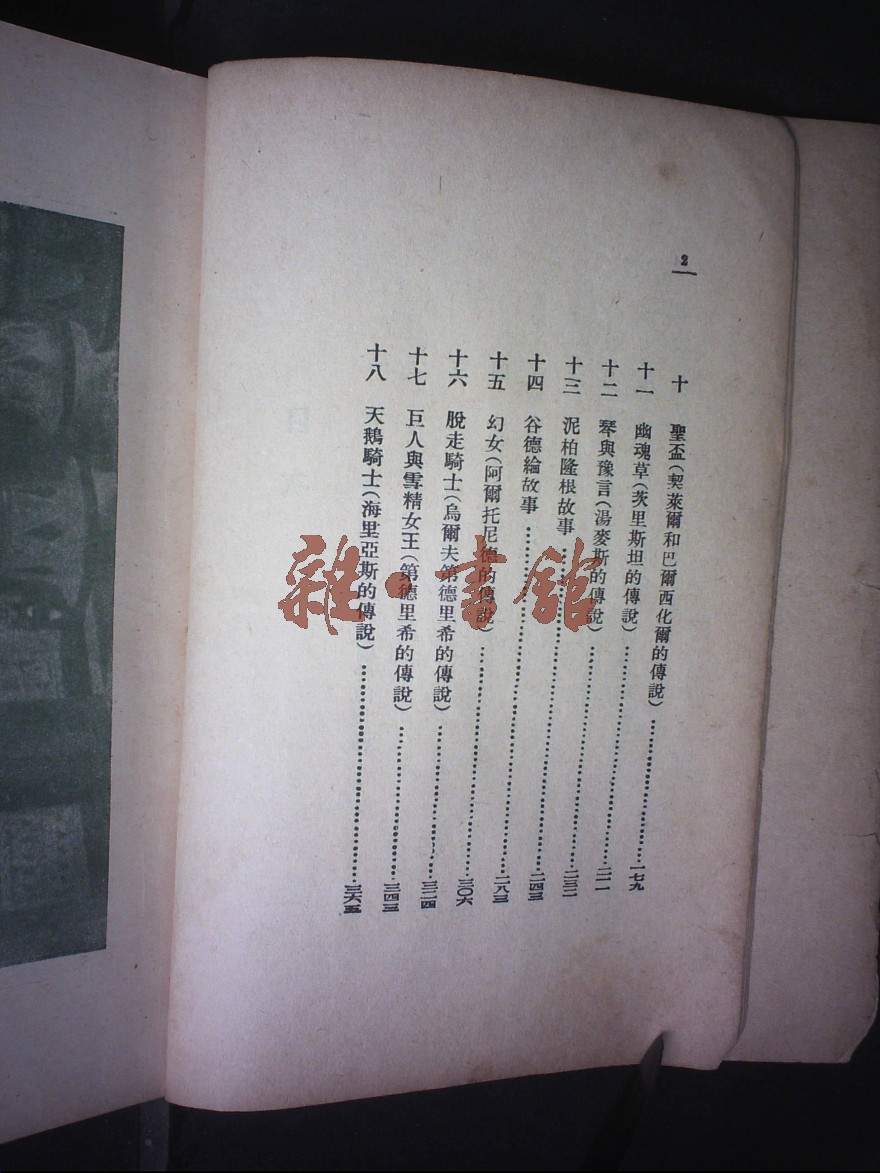 2
十 聖盃(契萊爾和巴爾西化爾的傳說)……一七九
十一 幽魂草(茨里斯坦的傳說)……二一一
十二 琴與豫言(湯麥斯的傳說)……二三二
十三 泥柏隆根故事……二四三
十四 谷德綸故事……二八三
十五 幻女(阿爾托尼德的傳說)……三〇六
十六 脫走騎士(烏爾夫第德里希的傳說)……三二四
十七 巨人與雪精女王(第德里希的傳說)……三四三
十八 天鵝騎士(海里亞斯的傳說)……三六五
雜·書館